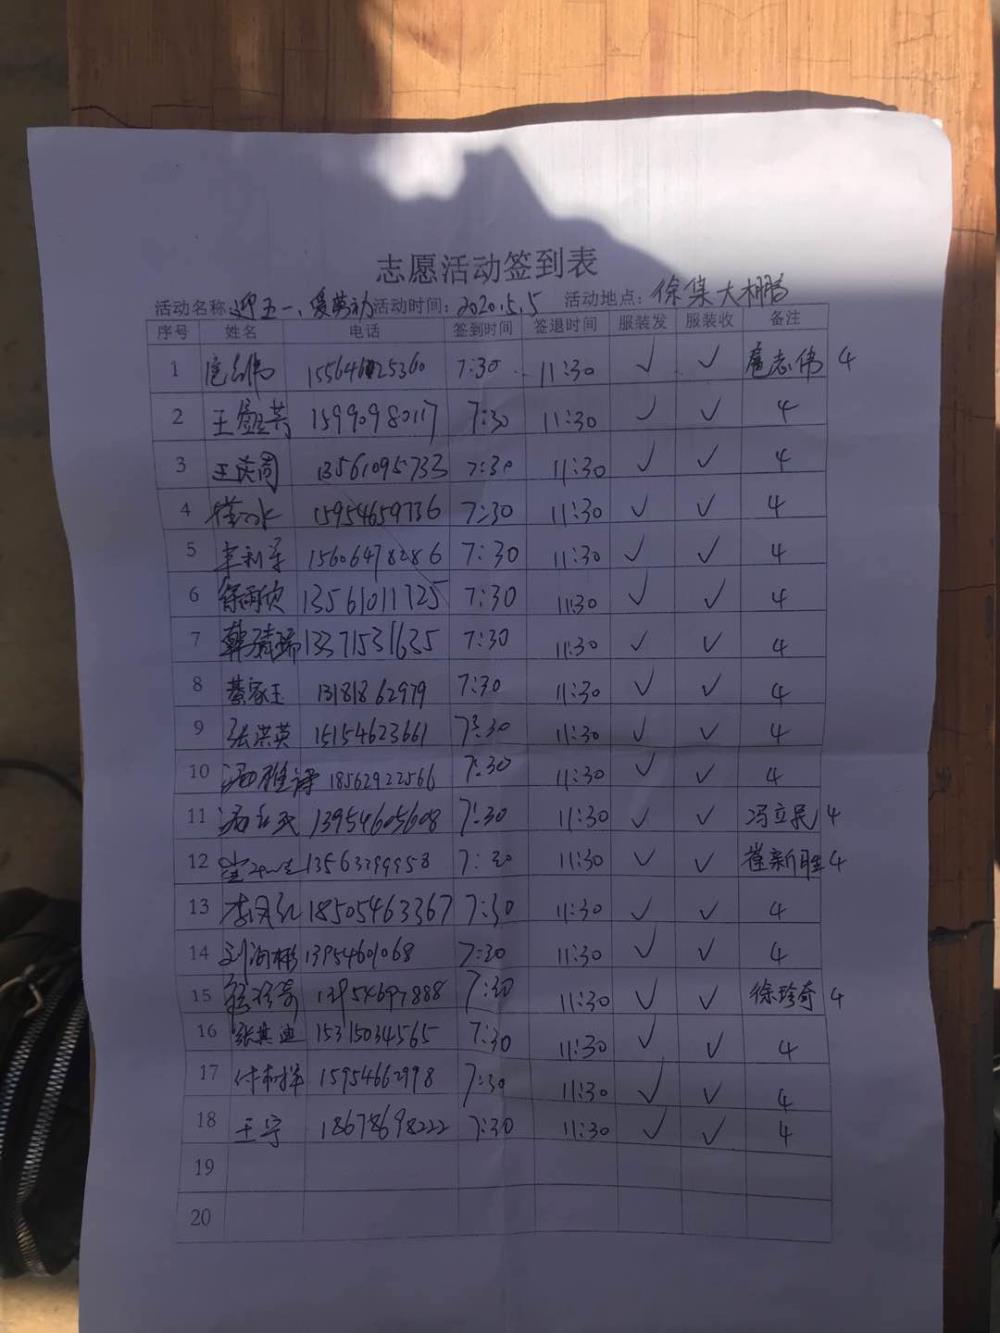 志愿活动签到表
活动名称:迎五一、爱劳动 活动时间:2020.5.5 活动地点:徐集大棚
序号 姓名 电话 签到时间 签退时间 服装发 服装收 备注
1 7:30 11:30 ✓ ✓ 扈志伟 4
2 15990980117 7:30 11:30 ✓ ✓ 4
3 13561095733 7:30 11:30 ✓ ✓ 4
4 15954659736 7:30 11:30 ✓ ✓ 4
5 15606478286 7:30 11:30 ✓ ✓ 4
6 徐雨欣 13561011725 7:30 11:30 ✓ ✓ 4
7 13371531635 7:30 11:30 ✓ ✓ 4
8 綦家玉 13181862979 7:30 11:30 ✓ ✓ 4
9 张洪英 15154623661 7:30 11:30 ✓ ✓ 4
10 18562922566 7:30 11:30 ✓ ✓ 4
11 13954605608 7:30 11:30 ✓ ✓ 冯立民 4
12 7:30 11:30 ✓ ✓ 崔新胜 4
13 18505463367 7:30 11:30 ✓ ✓ 4
14 13954601068 7:30 11:30 ✓ ✓ 4
15 徐珍奇 13954697888 7:30 11:30 ✓ ✓ 徐珍奇 4
16 张其迪 15315034565 7:30 11:30 ✓ ✓ 4
17 15954662998 7:30 11:30 ✓ ✓ 4
18 王宁 18678698222 7:30 11:30 ✓ ✓ 4
19
20